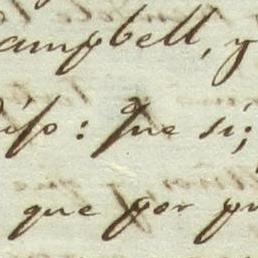 ampbell, y
dijo: Que si;
que por pu